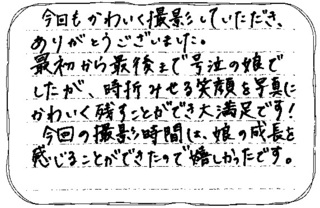 今回もかわいく撮影していただき、
ありがとうございました。
最初から最後まで号泣の娘で
したが、時折みせる笑顔を写真に
かわいく残すことができ大満足です!
今回の撮影時間は、娘の成長を
感じることができたので嬉しかったです。